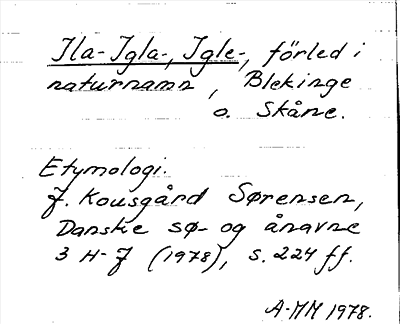 Ila- Igla-, Igle-, förled i
naturnamn, Blekinge
o. Skåne.
Etymologi.
J. Kousgård Sørensen,
Danske sø- og ånavne
3 H-J (1978), s. 224 ff.
A-MM 1978.